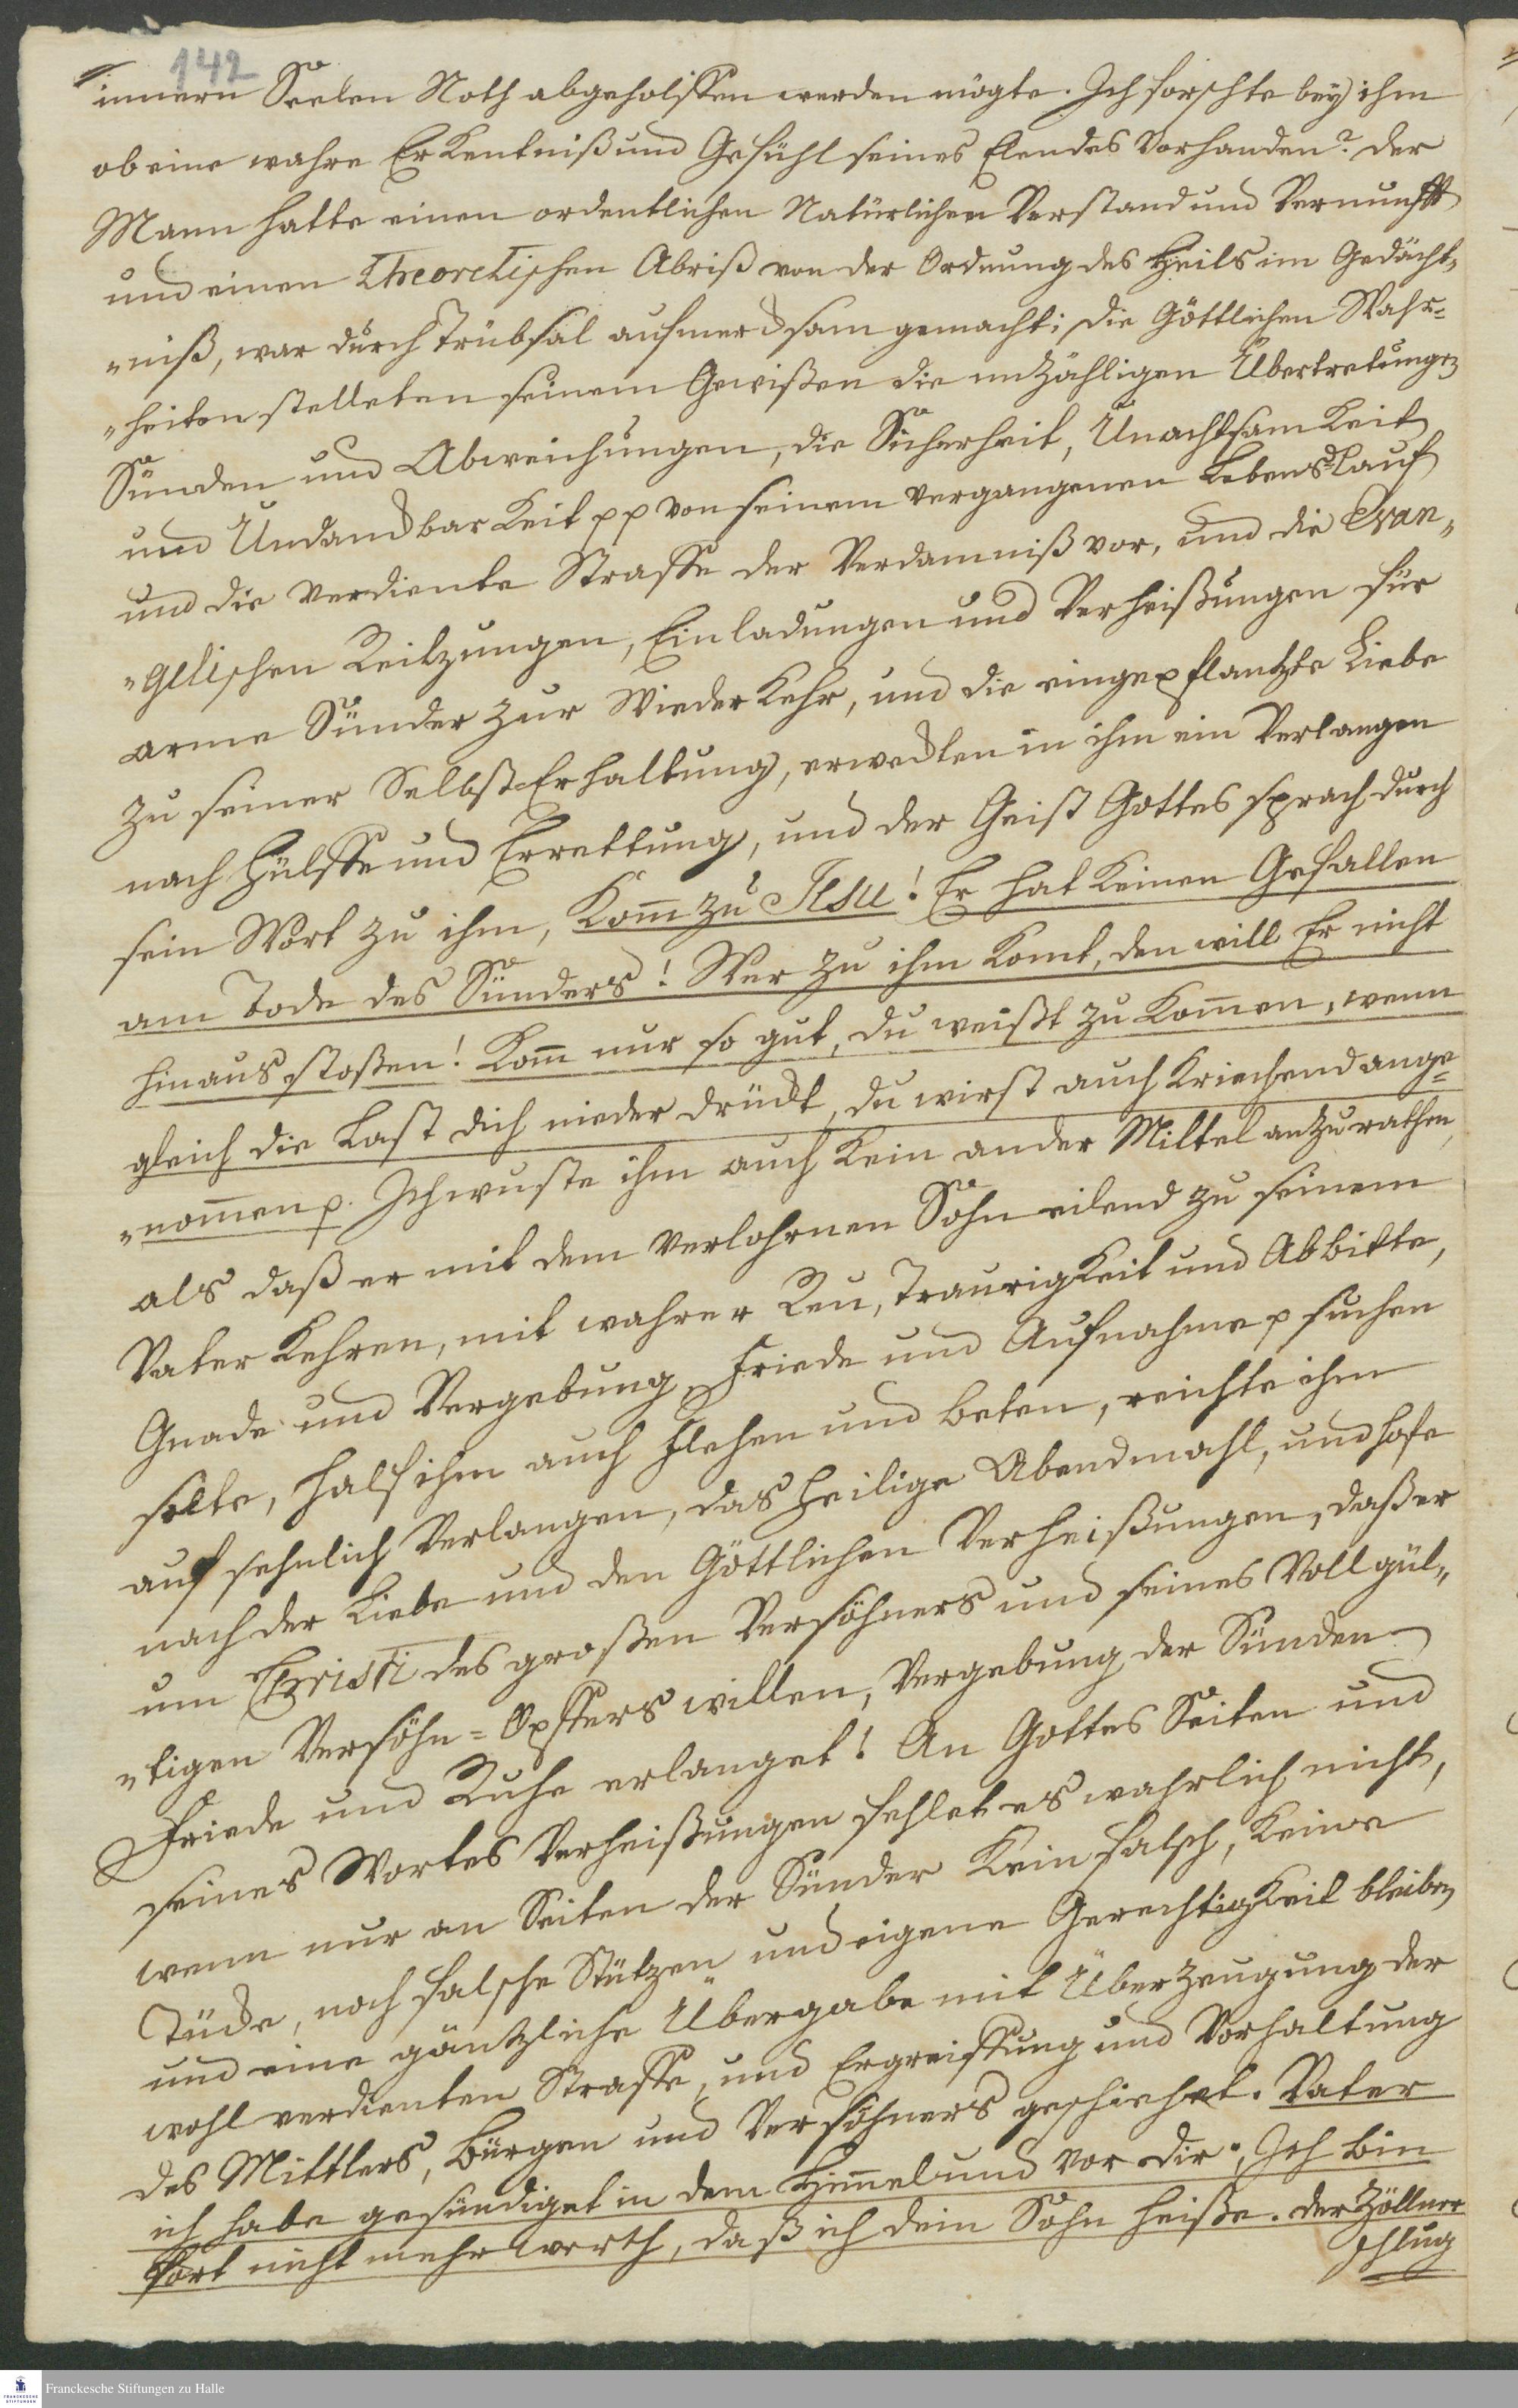 142
innern Seelen Noth abgeholffen werden mögte. Ich forschte bey ihm
ob eine wahre Erkentniß und Gefühl seines Elendes vorhanden? der
Mann hatte einen ordentlichen Natürlichen Verstand und Vernunfft
und einen Theoretischen Abriß von der Ordnung des Heils im Gedächt„
„niß, war durch Trübsal aufmercksam gemacht; die Göttlichen Wahr=
„heiten stelleten seinem Gewißen die unzähligen Übertretungen
Sünden und Abweichungen, die Sicherheit, Unachtsamkeit
und Undanckbarkeit pp von seinem vergangenen Lebens-Lauf
und die verdiente Straffe der Verdamniß vor, und die Evan„
„gelischen Reitzungen, Einladungen und Verheißungen für
arme Sünder zur Wiederkehr, und die eingepflantzte Liebe
zu seiner Selbst-Erhaltung, erweckten in ihm ein Verlangen
nach Hülffe und Errettung, und der Geist Gottes sprach durch
sein Wort zu ihm, Kom̅ zu Jesu! Er hat keinen Gefallen
am Tode des Sünders! Wer zu ihm komt, den will Er nicht
hinaus stoßen! Kom̅ nur so gut, du weißt zu kom̅en, wenn
gleich die Last dich nieder drückt, du wirst auch kriechend ange=
„nom̅en p. Ich wuste ihm auch kein ander Mittel anzurathen,
als daß er mit dem verlohrnen Sohn eilend zu seinem
Vater kehren, mit wahrer Reu, Traurigkeit und Abbitte,
Gnade und Vergebung, Friede und Aufnahme p suchen
solte, half ihm auch flehen und beten, reichte ihm
auf sehnlich Verlangen, das heilige Abendmahl, und hofe
nach der Liebe und den Göttlichen Verheißungen, daß er
um Christi des großen Versöhners und seines Vollgül„
„tigen Versöhn=Opffers willen, Vergebung der Sünden
Friede und Ruhe erlanget! An Gottes Seiten und
seines Wortes Verheißungen fehlet es wahrlich nicht,
wenn nur an Seiten der Sünder kein falsch, keine
Tücke, noch falsche Stützen und eigene Gerechtigkeit bleiben
und eine gäntzliche Übergabe mit Überzeugung der
wohl verdienten Straffe, und Ergreiffung und Vorhaltung
des Mittlers, Bürgen und Versöhners geschiehet. Vater
ich habe gesündiget in dem Him̅el und vor dir; Ich bin
fort nicht mehr werth, daß ich dein Sohn heiße. der Zöllner
schlug
Franckesche Stiftungen zu Halle